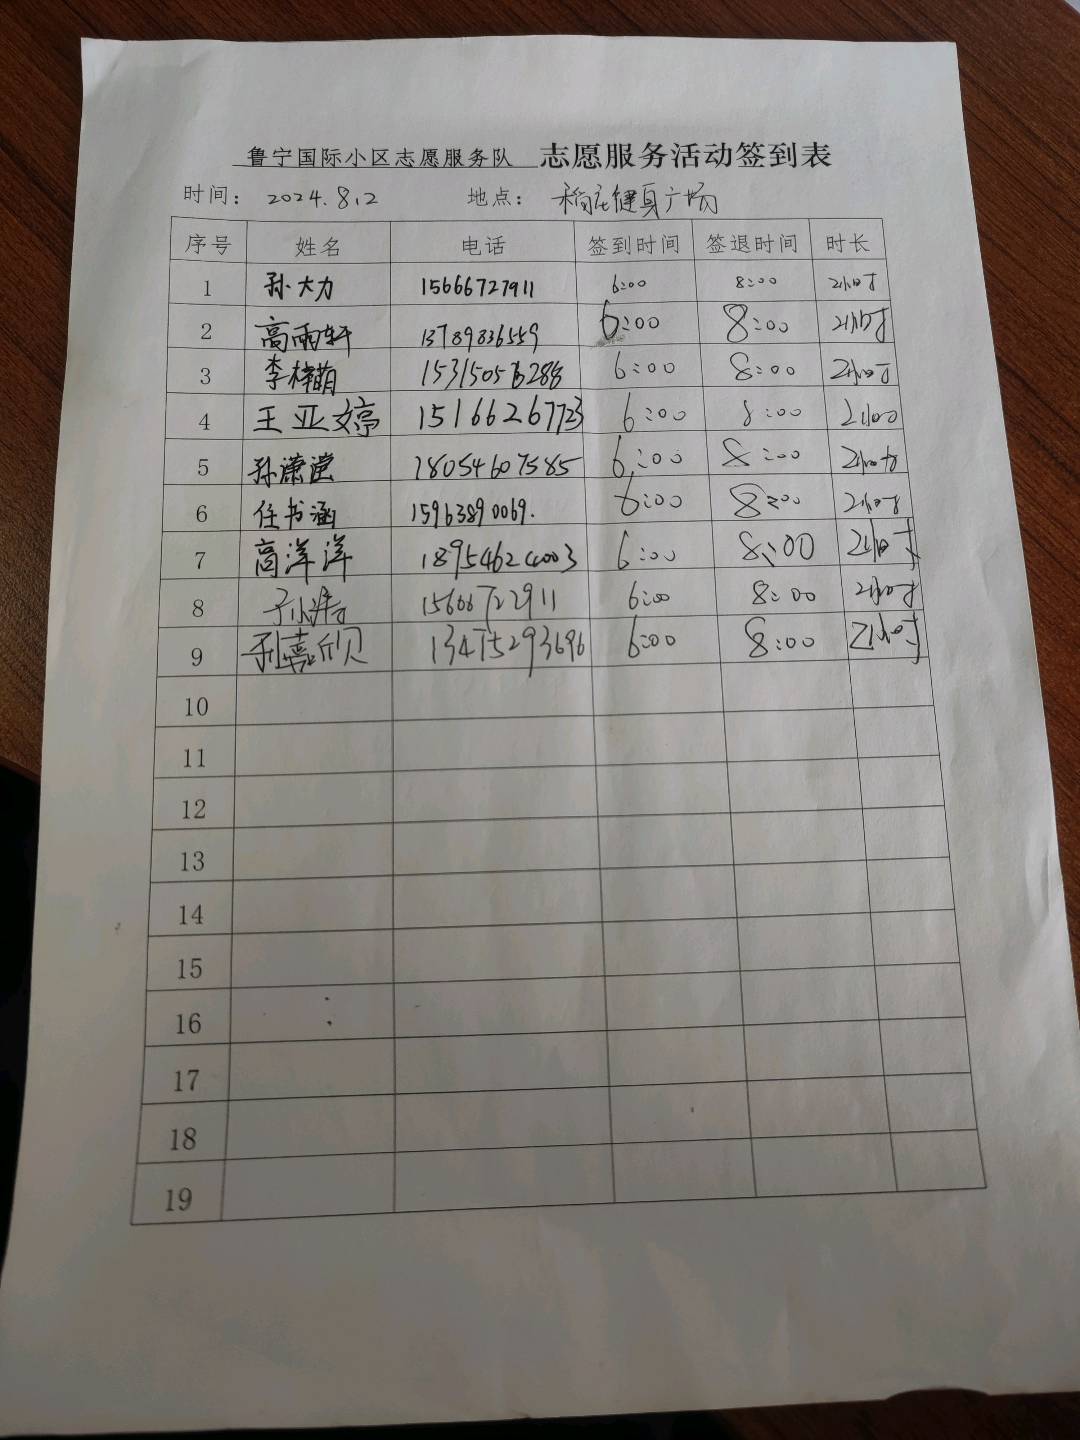 鲁宁国际小区志愿服务队 志愿服务活动签到表
时间： 2024.8.2 地点： 稻庄健身广场
序号 姓名 电话 签到时间 签退时间 时长
1 孙大力 15666727911 6:00 8:00 2小时
2 高雨轩 13789836559 6:00 8:00 2小时
3 李梓萌 6:00 8:00 2小时
4 王亚婷 15166267723 6:00 8:00 2小时
5 孙潇滢 18054607585 6:00 8:00 2小时
6 任书涵 15963890069. 6:00 8:00 2小时
7 高洋洋 18954624003 6:00 8:00 2小时
8 15606722911 6:00 8:00 2小时
9 孙嘉欣 13475293696 6:00 8:00 2小时
10
11
12
13
14
15
16
17
18
19